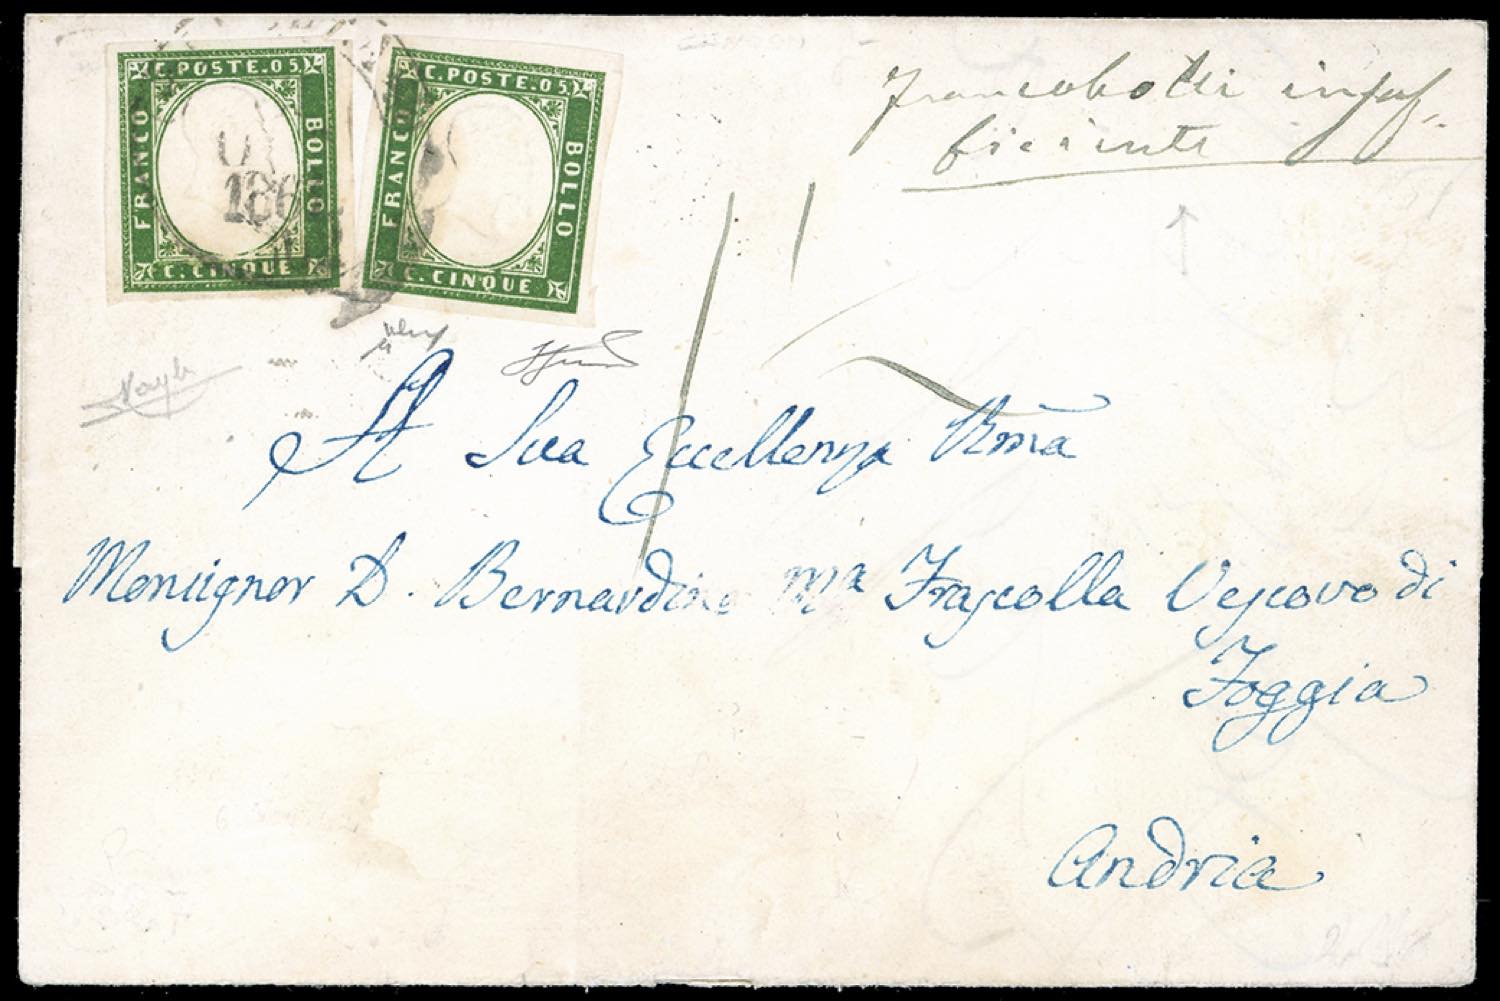 C. POSTE. 05
FRANCO
BOLLO
C. CINQUE
186
C. POSTE. 05
FRANCO
BOLLO
C. CINQUE
francobolli insuf-
ficiente
A Sua Eccellenza Rma
Monsignor D. Bernardino Ma Frascolla Vescovo di
Foggia
Andria